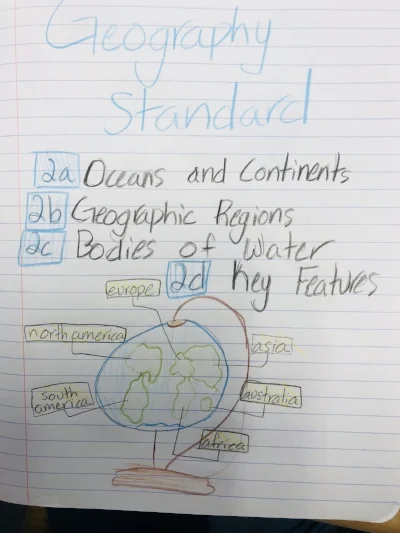 Geography
Standard
2a Oceans and Continents
2b Geographic Regions
2c Bodies of Water
2d Key Features
europe
north america
asia
south
america
australia
africa